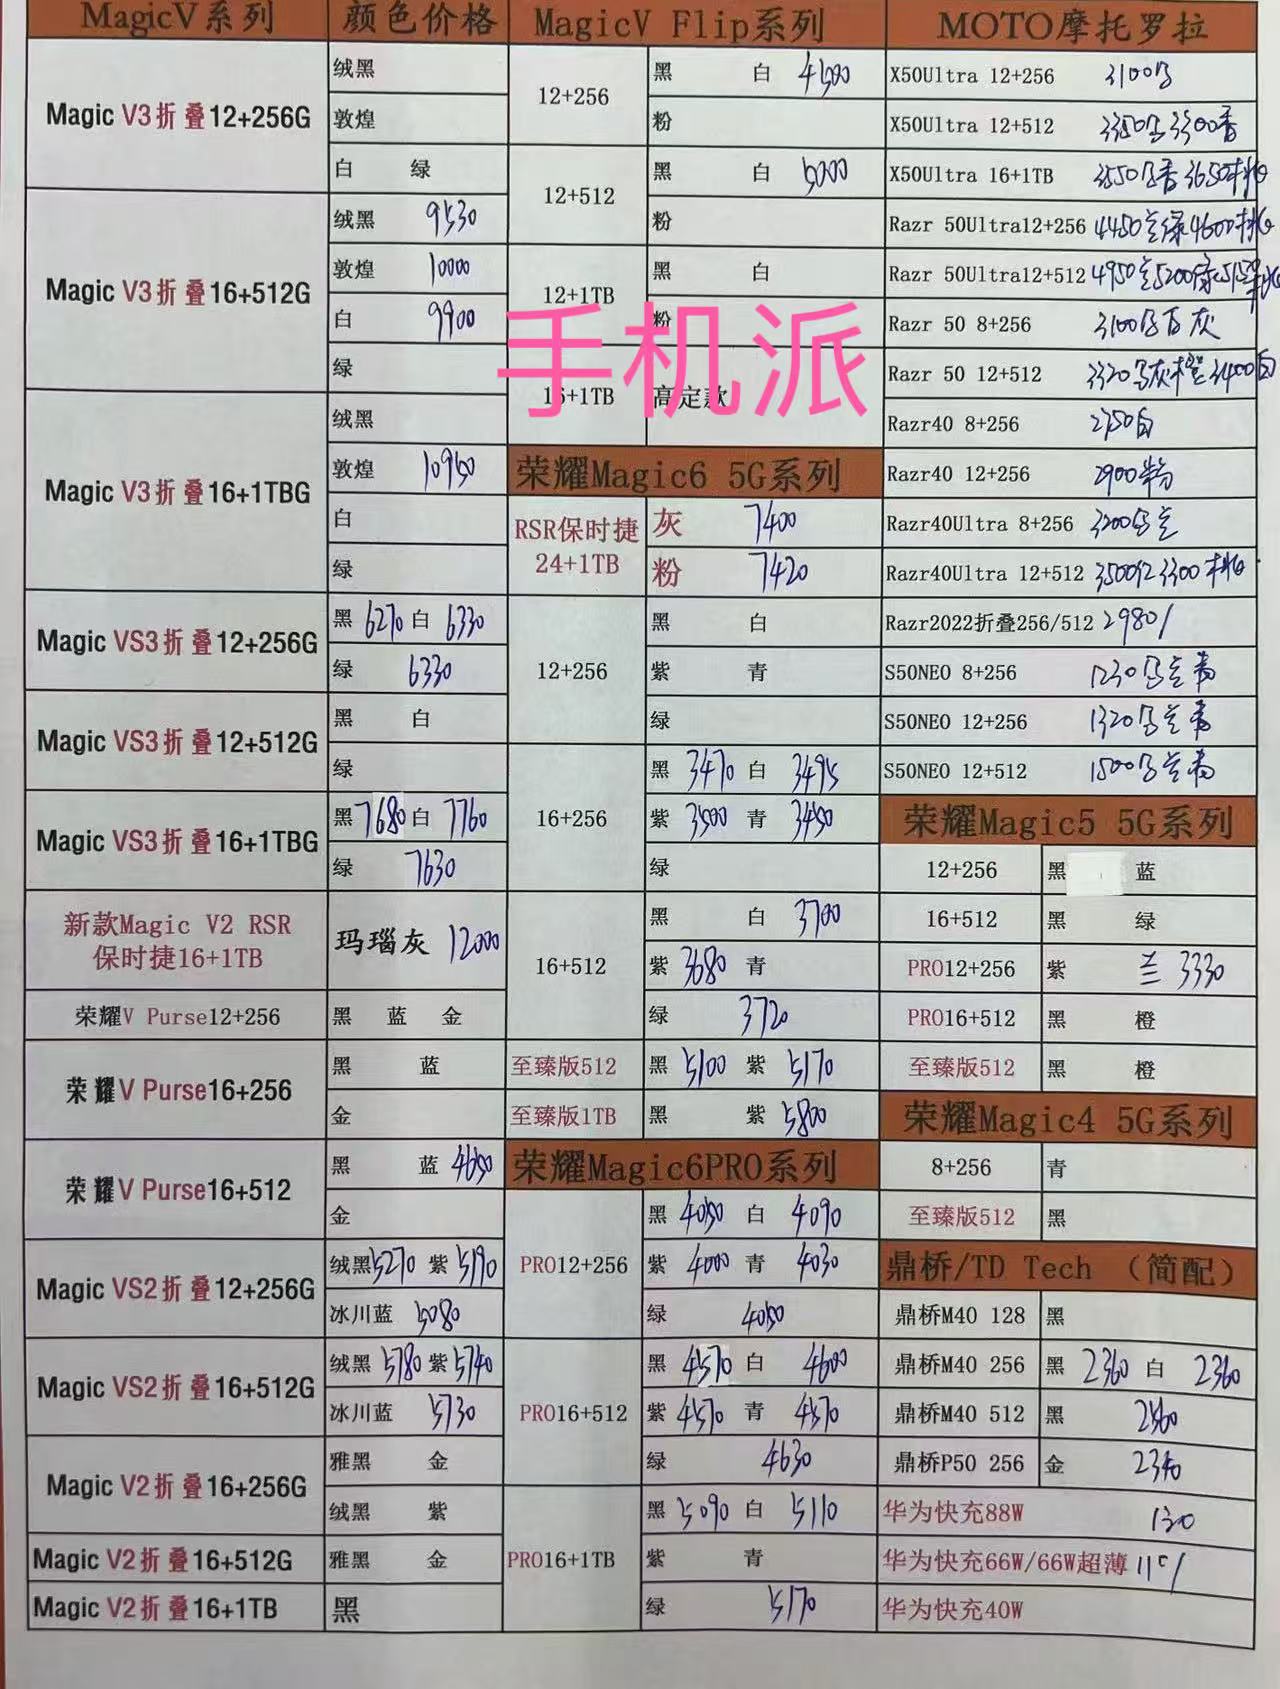 MagicV系列 颜色价格
Magic V3折叠12+256G
绒黑
敦煌
白 绿
Magic V3折叠16+512G
绒黑 9530
敦煌 10000
白 9900
绿
Magic V3折叠16+1TBG
绒黑
敦煌 10950
白
绿
Magic VS3折叠12+256G
黑 6270 白 6330
绿 6330
Magic VS3折叠12+512G
黑 白
绿
Magic VS3折叠16+1TBG
黑 7680 白 7760
绿 7630
新款Magic V2 RSR
保时捷16+1TB
玛瑙灰 12000
荣耀V Purse12+256 黑 蓝 金
荣耀V Purse16+256
黑 蓝
金
荣耀V Purse16+512
黑 蓝 4650
金
Magic VS2折叠12+256G
绒黑 5270 紫 5190
冰川蓝 5080
Magic VS2折叠16+512G
绒黑 5780 紫 5740
冰川蓝 5730
Magic V2折叠16+256G
雅黑 金
绒黑 紫
Magic V2折叠16+512G 雅黑 金
Magic V2折叠16+1TB 黑
MagicV Flip系列
12+256
黑 白 4500
粉
12+512
黑 白 5000
粉
12+1TB
黑 白
粉
16+1TB 高定款
手机派
荣耀Magic6 5G系列
RSR保时捷
24+1TB
灰 7400
粉 7420
12+256
黑 白
紫 青
绿
16+256
黑 3470 白 3495
紫 3500 青 3450
绿
16+512
黑 白 3700
紫 3680 青
绿 3720
至臻版512 黑 5100 紫 5170
至臻版1TB 黑 紫 5800
荣耀Magic6PRO系列
PRO12+256
黑 4050 白 4090
紫 4000 青 4030
绿 4050
PRO16+512
黑 4570 白 4600
紫 4570 青 4570
绿 4630
PRO16+1TB
黑 5090 白 5110
紫 青
绿 5170
MOTO摩托罗拉
X50Ultra 12+256 3100
X50Ultra 12+512 3350 3300
X50Ultra 16+1TB 3550 3650
Razr 50Ultra12+256 4450 绿4600
Razr 50Ultra12+512 4950 5200
Razr 50 8+256 3100 灰
Razr 50 12+512 3320 灰橙 3400白
Razr40 8+256 2750白
Razr40 12+256 2900粉
Razr40Ultra 8+256 3200
Razr40Ultra 12+512 3500红3300
Razr2022折叠256/512 2980/
S50NEO 8+256 1230
S50NEO 12+256 1320
S50NEO 12+512 1500
荣耀Magic5 5G系列
12+256 黑 蓝
16+512 黑 绿
PRO12+256 紫 兰 3330
PRO16+512 黑 橙
至臻版512 黑 橙
荣耀Magic4 5G系列
8+256 青
至臻版512 黑
鼎桥/TD Tech （简配）
鼎桥M40 128 黑
鼎桥M40 256 黑 2360 白 2360
鼎桥M40 512 黑 2560
鼎桥P50 256 金 2340
华为快充88W 130
华为快充66W/66W超薄
华为快充40W